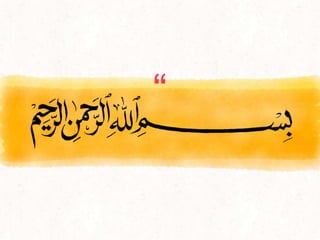 “
بِسْمِ اللهِ الرَّحْمٰنِ الرَّحِيْمِ